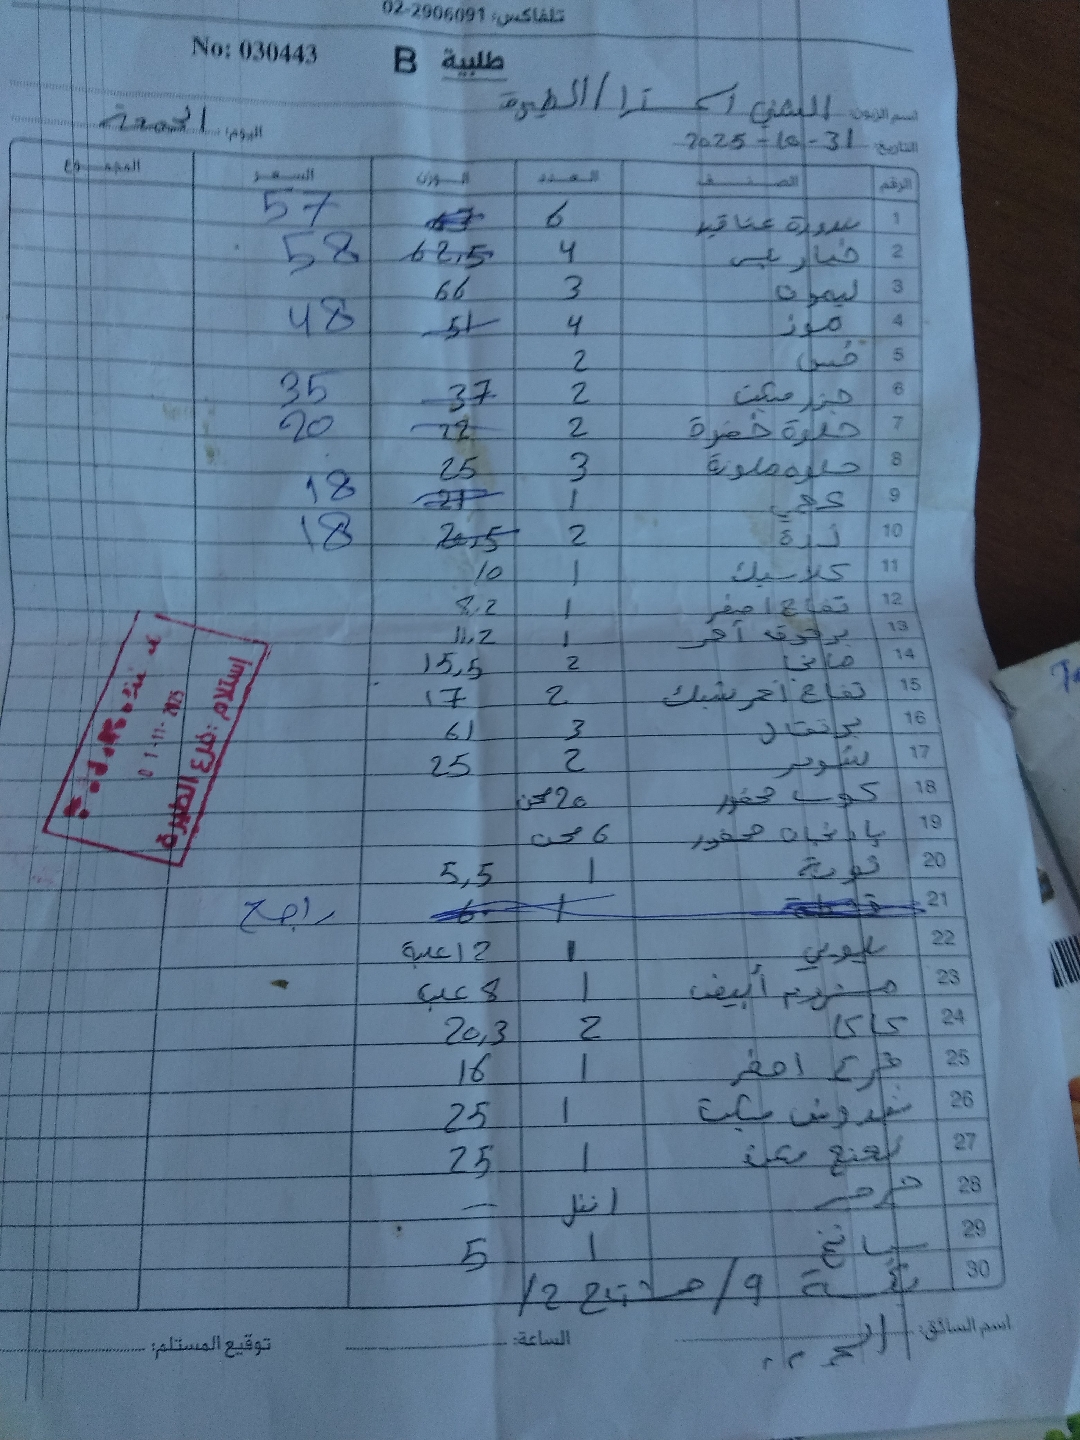 تلفاكس: 02-2906091
No: 030443 B طلبية
اسم الزبون: اليمني اكسترا / الطيرة
التاريخ: 31-10-2025 اليوم: الجمعة
الرقم الصنف العدد الوزن السعر المجموع
1 بندورة عناقيد 6 57
2 خيار بيبي 4 62,5 58
3 ليمون 3 66
4 موز 4 51 48
5 خس 2
6 جزر مكيت 2 37 35
7 حلوة خضرة 2 22 20
8 حلوه ملونة 3 25
9 1 21 18
10 ذرة 2 20,5 18
11 كلاسيك 1 10
12 تفاح اصفر 1 8,2
13 برقوق أحمر 1 11,2
14 مانجا 2 15,5
15 تفاح أحمر شبك 2 17
16 برتقال 3 61
17 شومر 2 25
18 كوسا محفور 20 صحن
19 باذنجان محفور 6 صحن
20 1 5,5
21 1 6 راجع
22 1 12 علبة
23 مشروم أبيض 1 8 علب
24 كاكا 2 20,3
25 قرع اصفر 1 16
26 بقدونس مكيت 1 25
27 نعنع مكيت 1 25
28 1
29 سبانخ 1 5
30 9/ 2/
اسم السائق: الساعة: توقيع المستلم:
استلام فرع: الماصيون
0 1 -11- 2025